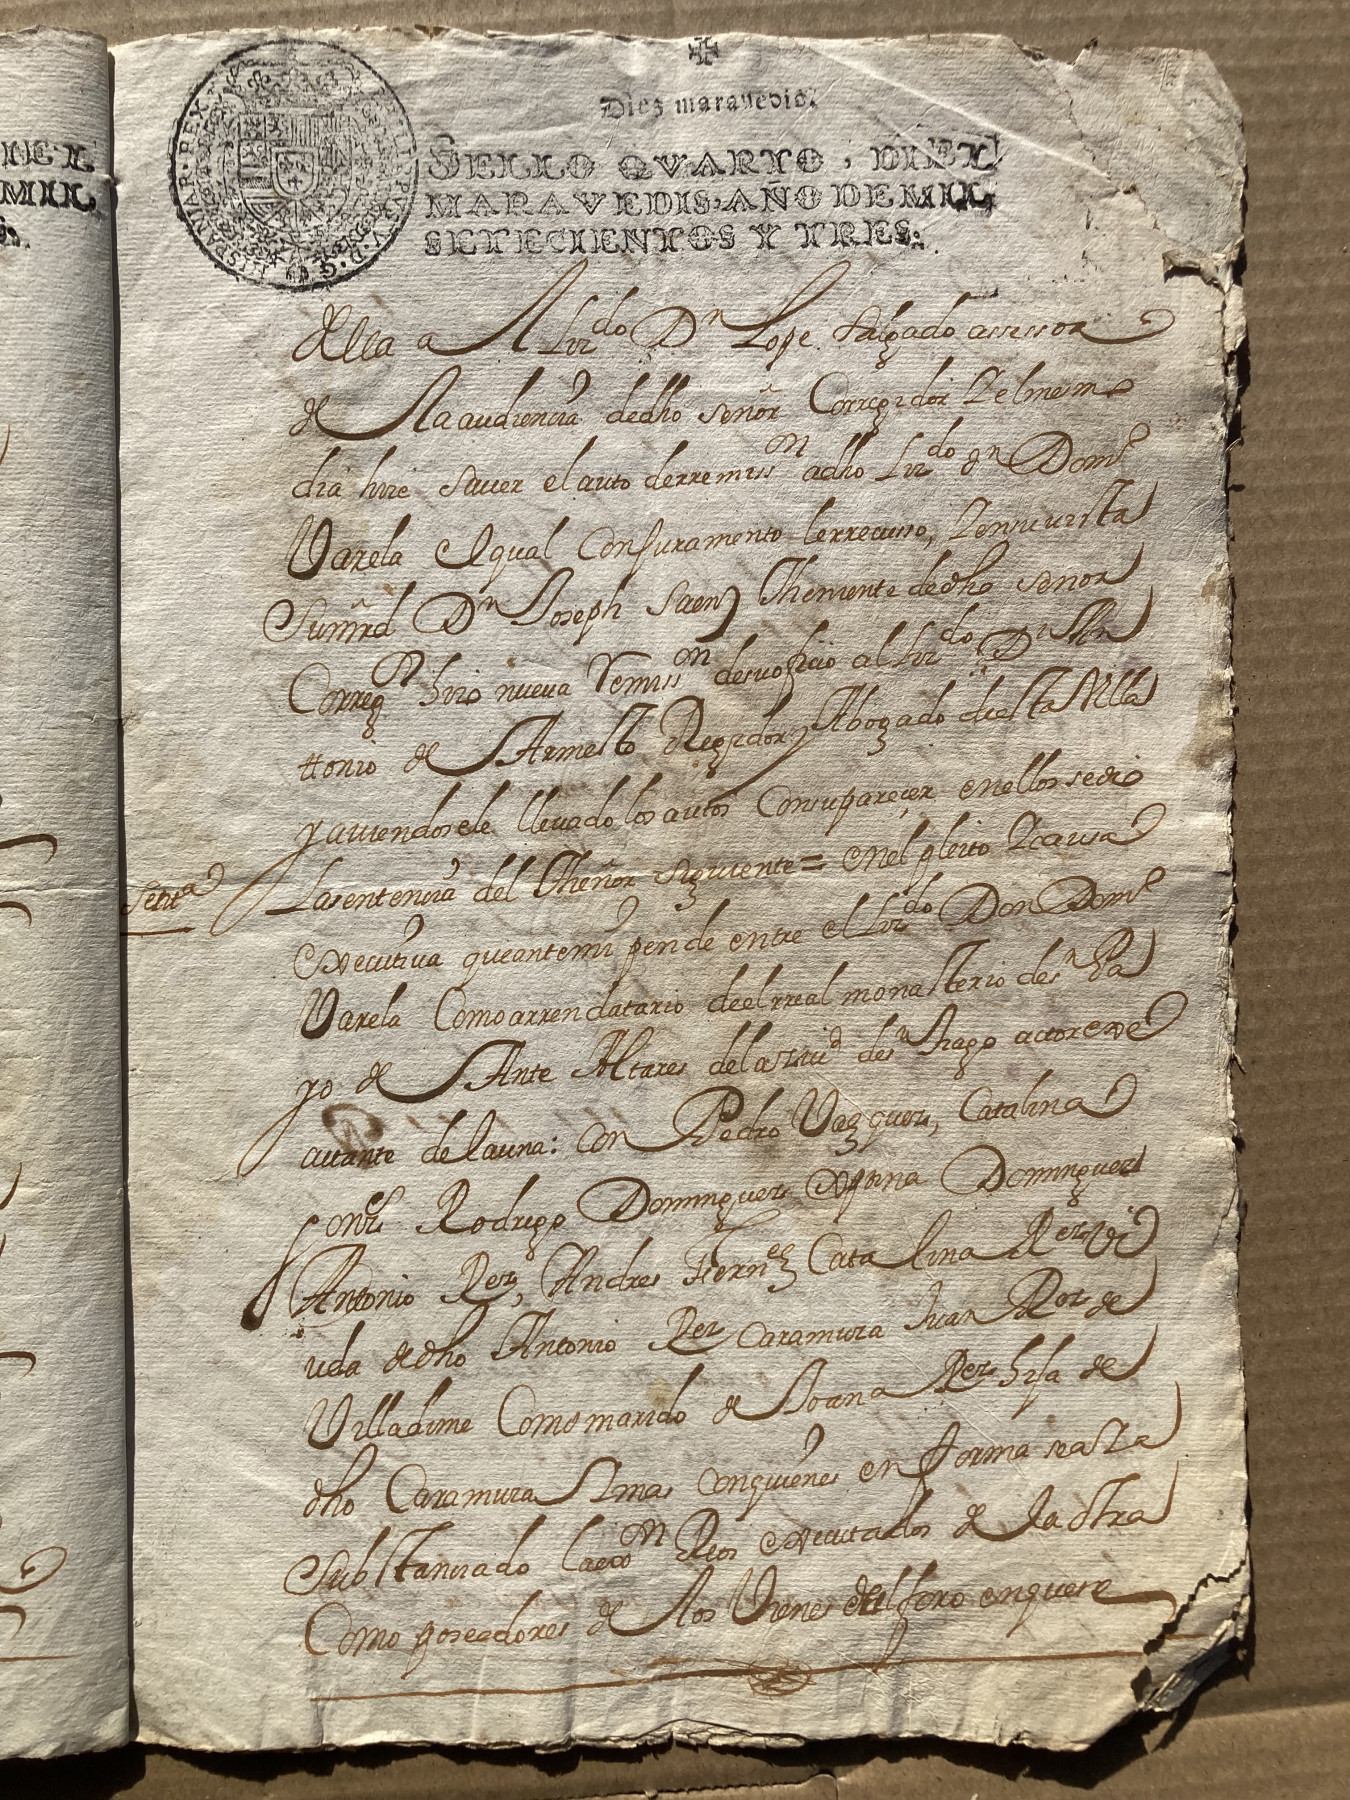 IEL
MIL
PHILIPVS V. D. G. HISPANIAR. REX
Diez maravedis.
SELLO QVARTO, DIEZ
MARAVEDIS, AÑO DE MIL
SETECIENTOS Y TRES.
della a A Lizdo Dn Lope Salgado assessor
de la audiencia dedho señor Corregidor Yel mesmo
dia hice saver el auto derremissn adho Lizdo dn Domo
Varela elqual Conjuramento lerrecusso, Yensu vista
Sumrd Dn Joseph Saenz Theniente dedho señor
Corregr hizo nueva Remissn desuofizio al Lizdo Dn An
ttonio de Armesto Regidor y Abogado destta Villa
yaviendosele llevado los autos Consuparezer enellos sedio
Lasentencia del thenor siguiente = enel pleito Ycausa
Sentta
executiva queantemi pende entre el Lizdo Don Domo
Varela Comoarrendatario deel rreal monasterio desn Pa
yo de Ante Altares delaziud desn tiago actor exe
cutante delauna: con Pedro Vazquez, Catalina
Rodrigo Dominguez Dominguez
Antonio Rez, Andres Fernez Catalina Rez vi
uda dedho Antonio Rez Caramuza Juan Roz de
Villadime Comomarido de Joana Rez hija de
dho Caramuza Ymas conquienes en forma seaza
substanciado lacaon Reos executados de la otra
Como poseedores de los Vienes del foro enquese